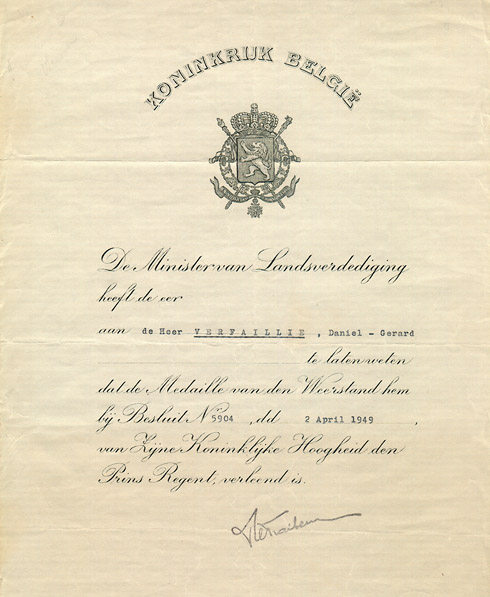 KONINKRIJK BELGIË
De Minister van Landsverdediging
heeft de eer
aan de Heer VERFAILLIE , Daniel - Gerard
te laten weten
dat de Medaille van den Weerstand hem
bij Besluit Nʳ 5904 , dd 2 April 1949 ,
van Zijne Koninklijke Hoogheid den
Prins Regent, verleend is.